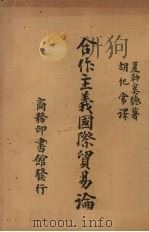 夏勒德著
胡紀常譯
合作主義國際貿易論
商務印書館發行